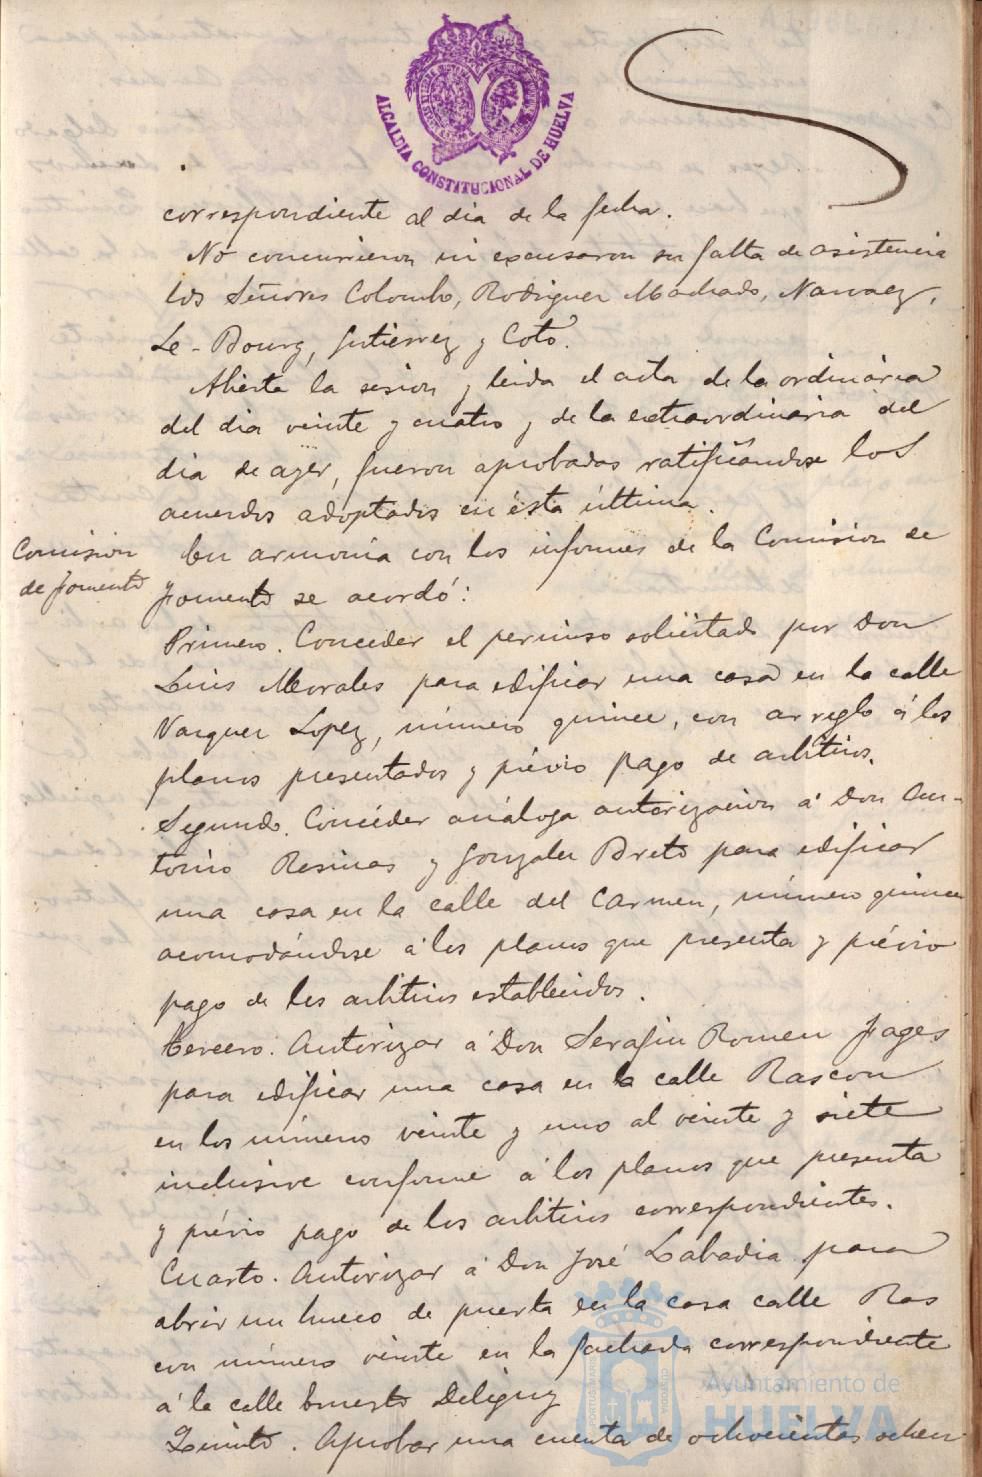 ALCALDIA CONSTITUCIONAL DE HUELVA
correspondiente al dia de la fecha.
No concurrieron ni excusaron su falta de asistencia
los Señores Colombo, Rodriguez Machado, Narvaez,
Le-Bourg, Gutierrez y Coto.
Abierta la sesion y leida el acta de la ordinaria
del dia veinte y cuatro y de la extraordinaria del
dia de ayer, fueron aprobadas ratificandose los
acuerdos adoptados en ésta última.
Comision
de Fomento
En armonia con los informes de la Comision de
Fomento se acordó:
Primero. Conceder el permiso solicitado por Don
Luis Morales para edificar una casa en la calle
Vazquez Lopez, número quince, con arreglo á los
planos presentados y prévio pago de arbitrios.
Segundo. Concéder análoga autorizacion á Don An-
tonio Resinas y Gonzalez Breto para edificar
una casa en la calle del Carmen, número quince
acomodándose á los planos que presenta y prévio
pago de los arbitrios establecidos.
Tercero. Autorizar á Don Serafin Romeu Fages
para edificar una casa en la calle Rascon
en los números veinte y uno al veinte y siete
inclusive conforme á los planos que presenta
y prévio pago de los arbitrios correspondientes.
Cuarto. Autorizar á Don José Labadia para
abrir un hueco de puerta en la casa calle Ras
con número veinte en la fachada correspondiente
á la calle Ernesto Deligny
Quinto. Aprobar una cuenta de ochocientas ochen
Ayuntamiento de
HUELVA